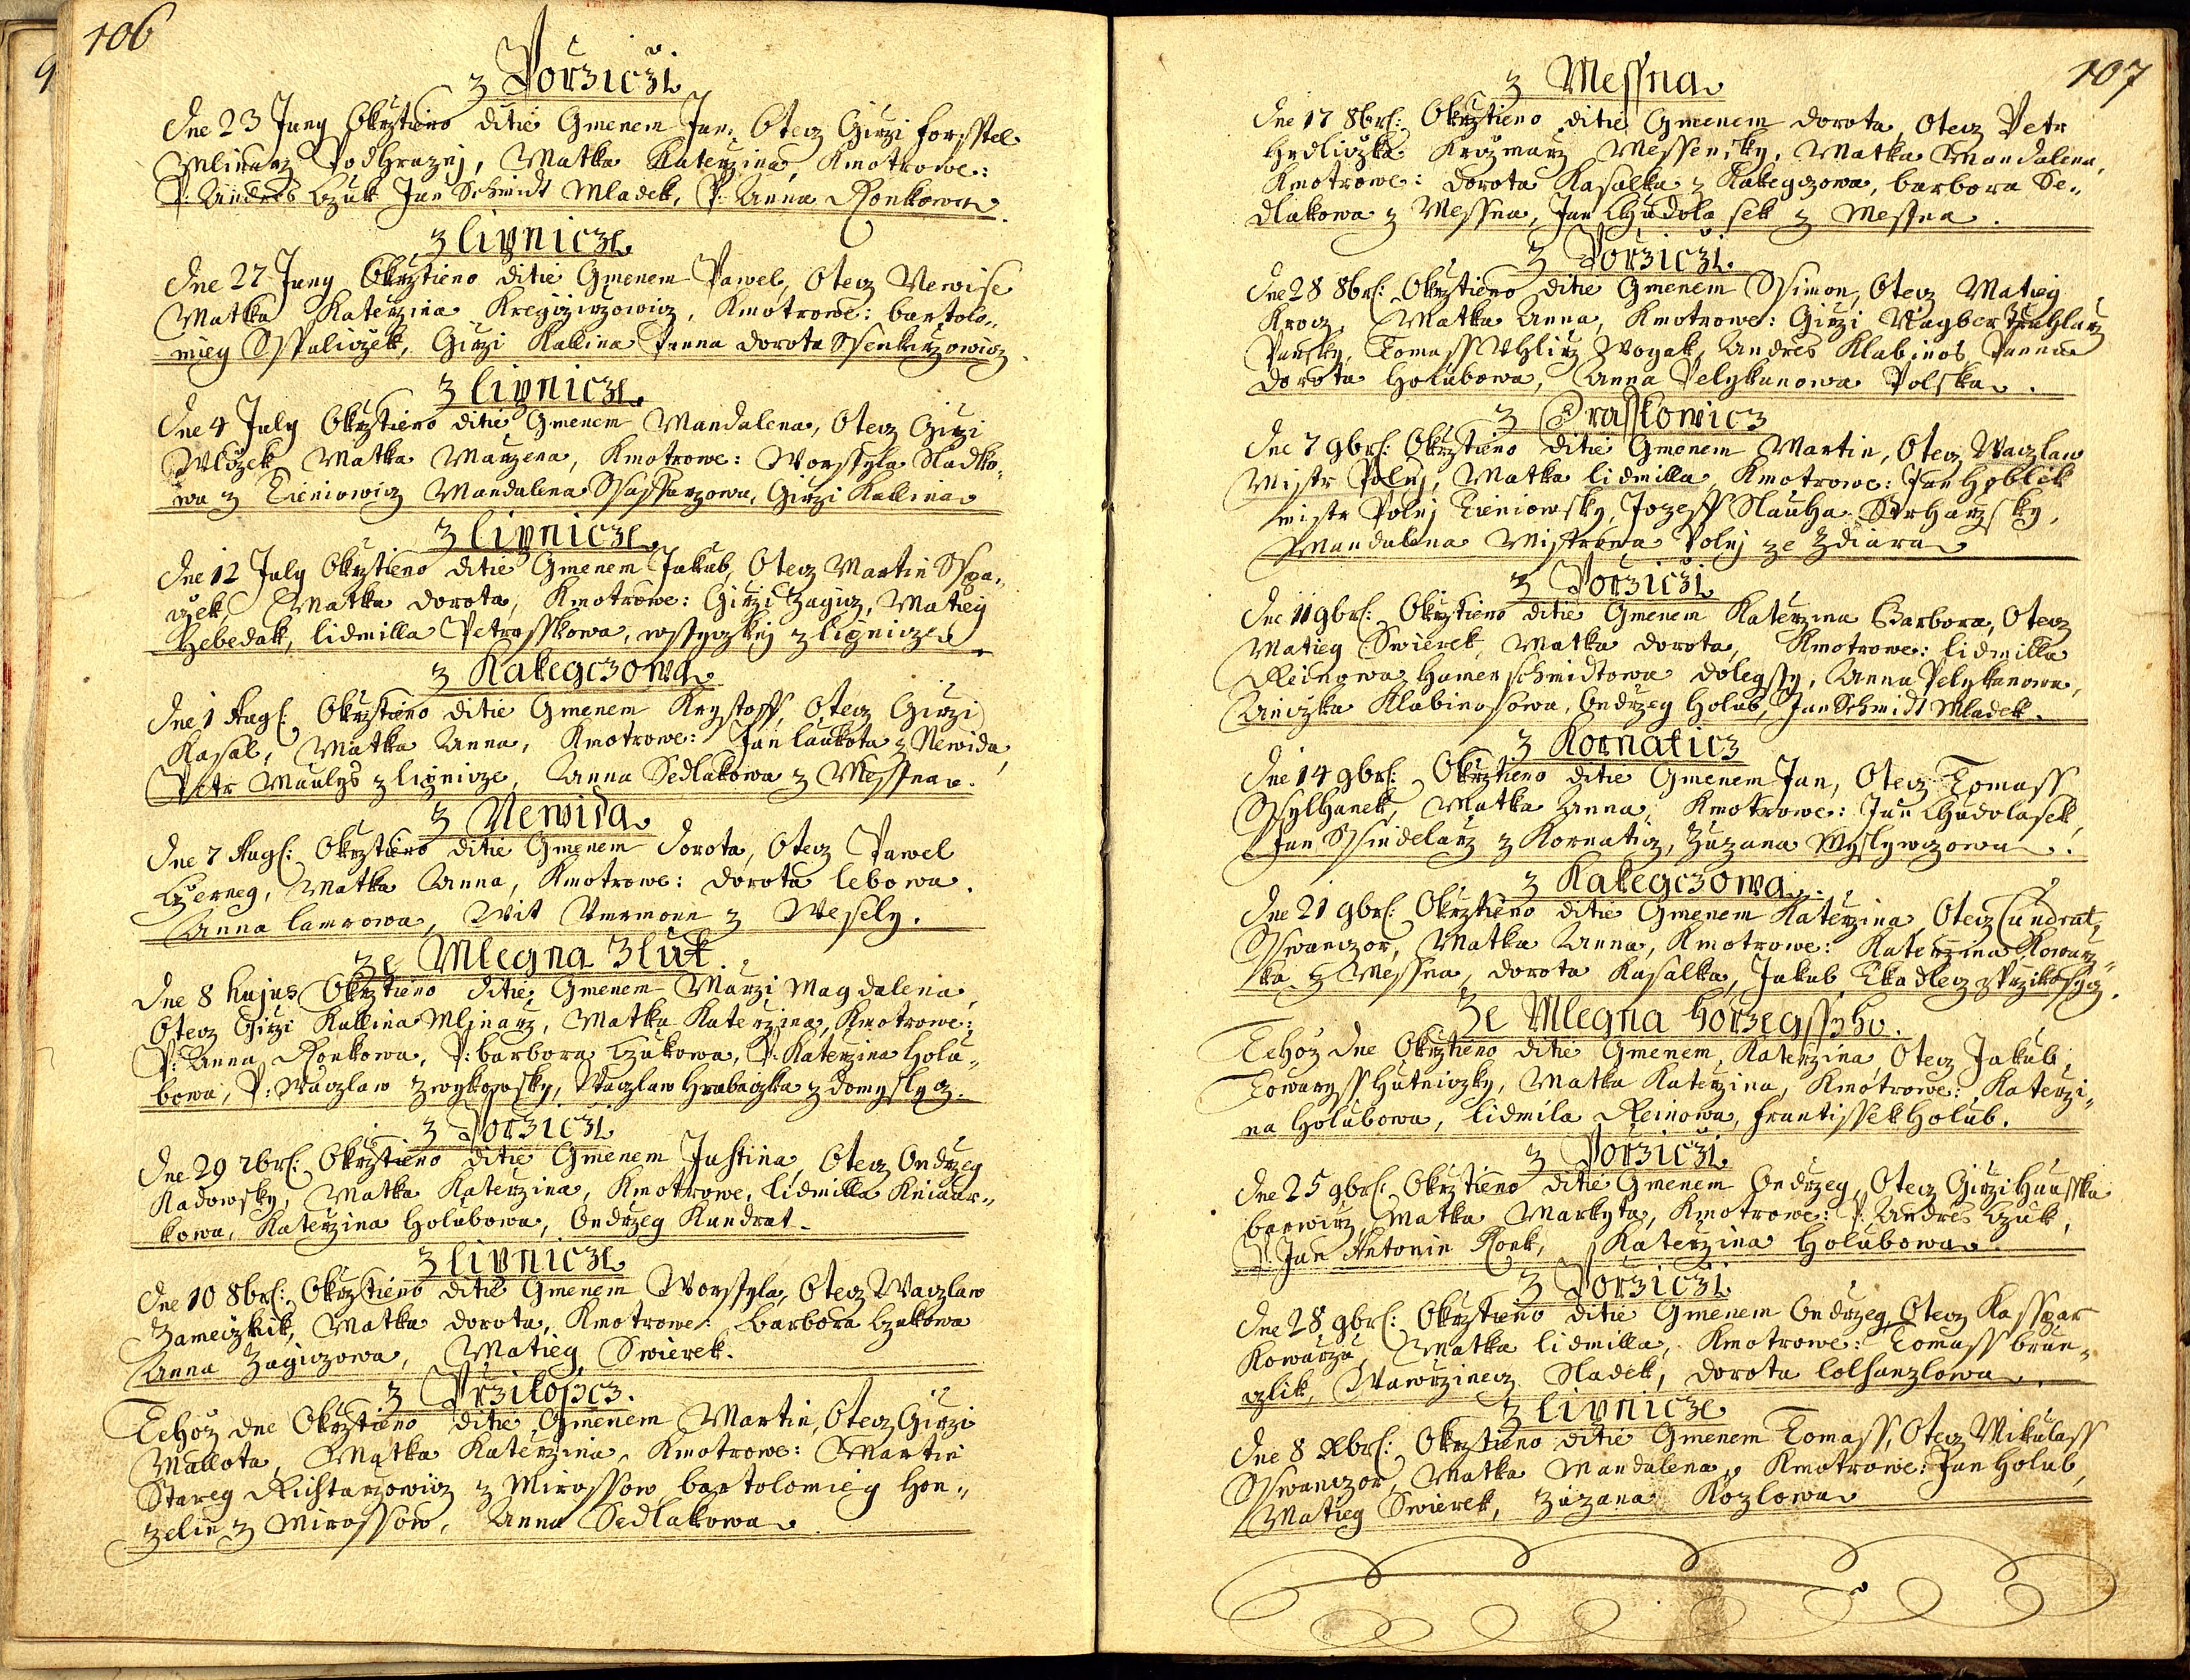 106
z Porziczi
Dne 23 Juny Okrztieno ditie Gmenem Jan, Otecz Girzi Forsstel
Mlinarz Podhrazy, Matka Katerzina, Kmotrowe:
P: Andres Czuk Jan Schmidt Mladek, P: Anna Ronkowa
z lipnicze
Dne 27 Juny Okrztieno ditie Gmenem Pawel, Otecz Newise
Matka Katerzina Kregzirzowicz, Kmotrowe: bartolo„
mieg Sspaliczek, Girzi Kallina Panna dorota Ssenkirzowicz
z lipnicze
Dne 4 July Okrztieno ditie Gmenem Mandalena, Otecz Girzi
Wlczek Matka Marzena, Kmotrowe: Worssyla Sladko„
wa z Tieniowicz Mandalena Ssaffarzowa, Girzi Kallina
z lipnicze
Dne 12 July Okrztieno ditie Gmenem Jakub, Otecz Martin Sspa„
czek Matka dorota, Kmotrowe: Girzi Zagicz, Matieg
Hebedak, lidmilla Petrasskowa, wssyczkj z lipnicze
z Kakegczowa
Dne 1 Aug: Okrztieno ditie Gmenem Krystoff, Otecz Girzi
Kasal, Matka Anna, Kmotrowe: Jan laukota z Newida,
Petr Maulys z lipnicze, Anna Sedlakowa z Messna.
z Newida
Dne 7 Aug: Okrztieno ditie Gmenem dorota, Otecz Pawel
Czerneg, Matka Anna, Kmotrowe: dorota lebowa.
Anna lamrowa, Wit Urmann z Wesely.
ze Mlegna Zlut
Dne 8 hujus Okrztieno ditie Gmenem Marzi Magdalena,
Otecz Girzi Kallina Mlinarz, Matka Katerzina, Kmotrowe:
P: Anna Ronkowa, P: barbora Czukowa, P: Katerzina Holu„
bowa, P: Waczlaw Zwykowsky, Waczlaw Hrabaczka z Domyslycz.
z Porziczi
Dne 29 7br: Okrztieno ditie Gmenem Justina, Otecz Ondrzeg
Radowsky, Matka Katerzina, Kmotrowe, lidmilla Kniaur„
kowa, Katerzina Holubowa, Ondrzeg Kundrat
z lipnicze
Dne 10 8br: Okrztieno ditie Gmenem Worssyla, Otecz Waczlaw
Zameczkik, Matka dorota, Kmotrowe: barbora Czukowa
Anna Zagiczowa, Matieg Swierek.
z Przikosycz.
Tehoz dne Okrztieno ditie Gmenem Martin, Otecz Girzi
Mallota, Matka Katerzina, Kmotrowe: Martin
Stareg Richtarzowicz z Mirossow bartolomieg Hon„
zelin z Mirossow, Anna Sedlakowa
107
z Messna
Dne 17 8br: Okrztieno ditie Gmenem dorota, Otecz Petr
Hrdliczka Krczmarz Messensky, Matka Mandalena,
Kmotrowe: dorota Kasalka z Kakegczowa, barbora Se„
dlakowa z Messna, Jan Chudola sek z Messna.
z Porziczi
Dne 28 8br: Okrztieno ditie Gmenem Ssimon, Otecz Matieg
Krocz, Matka Anna, Kmotrowe: Girzi Nagber Truhlarz
Pansky, Tomass Uhlirz Wogak, Andres Klabinos, Panna
dorota Holubowa, Anna Pelykanowa Polska.
z Drasskowicz
Dne 7 9br: Okrztieno ditie Gmenem Martin, Otecz Waczlaw
Mistr Polnj, Matka lidmilla, Kmotrowe: Jan Hoblik
mistr Polnj Tieniowsky, Jozeff Slauha Strharzsky,
Mandalena Mistrowa Polnj ze Zdiara
z Porziczi
Dne 11 9br: Okrztieno ditie Gmenem Katerzina Barbora, Otecz
Matieg Swierek, Matka dorota, Kmotrowe: lidmilla
Reinowa Hamerschmidtowa dolegssy, Anna Pelykanowa,
Aniczka Klabinosowa, Ondrzeg Holub, Jan Schmidt Mladek.
z Kornaticz
Dne 14 9br: Okrztieno ditie Gmenem Jan, Otecz Tomass
Ssylhanek, Matka Anna, Kmotrowe: Jan Chudolasek,
Jan Ssindelarz z Kornaticz, Zuzana Myslywczowa.
z Kakegczowa
Dne 21 9br: Okrztieno ditie Gmenem Katerzina, Otecz Cundrat
Sswanczor, Matka Anna, Kmotrowe: Katerzina Kowarz„
ka z Messna, dorota Kasalka, Jakub Tkadlecz z Przikosycz.
Ze Mlegna Horzegssyho.
Tehoz dne Okrztieno ditie Gmenem Katerzina, Otecz Jakub
Towaryss Hutniczky, Matka Katerzina, Kmotrowe: Katerzi„
na Holubowa, lidmila Reinowa, Frantissek Holub.
z Porziczi
Dne 25 9br: Okrztieno ditie Gmenem Ondrzeg, Otecz Girzi Huasska
barwirz, Matka Markyta, Kmotrowe: P: Andres Czuk,
P: Jan Antonin Ronk, Katerzina Holubowa.
z Porziczi
Dne 28 9br: Okrztieno ditie Gmenem Ondrzeg, Otecz Kasspar
Kowarzu, Matka lidmilla, Kmotrowe: Tomass brun„
czlik, Wawrzinecz Sladek, dorota lolhanzlowa.
z lipnicze
Dne 8 Xbr: Okrztieno ditie Gmenem Tomass, Otecz Mikulass
Sswanczor, Matka Mandalena, Kmotrowe: Jan Holub,
Matieg Swierek, Zuzana Kozlowa